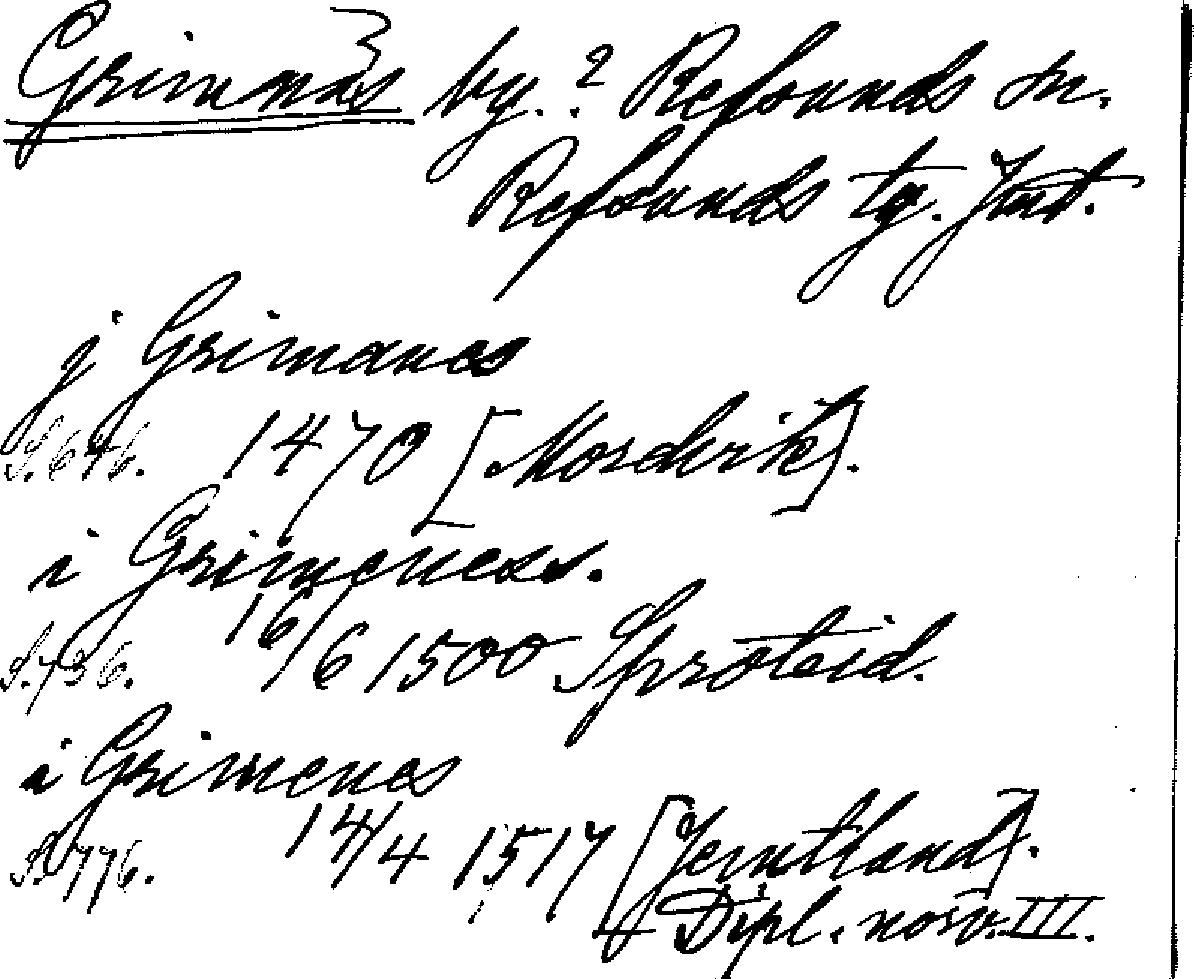 Grimnäs by.? Refsunds sn.
Refsunds tg. Jmt.
j Grimanes
S. 646. 1470 [Mordvik].
i Grimeness.
S. 736. 16/6 1500 Sprøteid.
i Grimenes
S. 776. 14/4 1517 [Jemtland].
Dipl. norv. III.